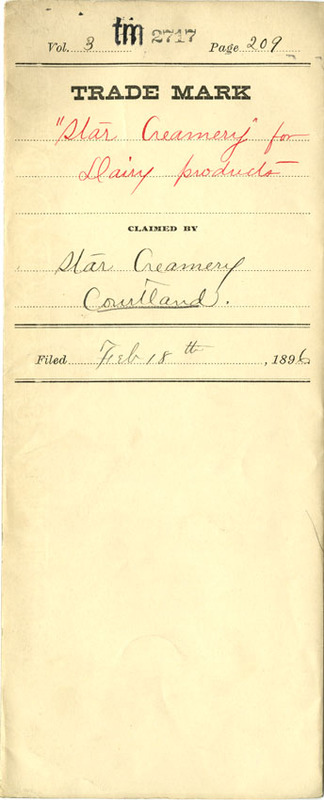 Vol. 3 tm 2717 Page 209
TRADE MARK
"Star Creamery" for
Dairy products
CLAIMED BY
Star Creamery
Courtland.
Filed Feb 18th, 1896.